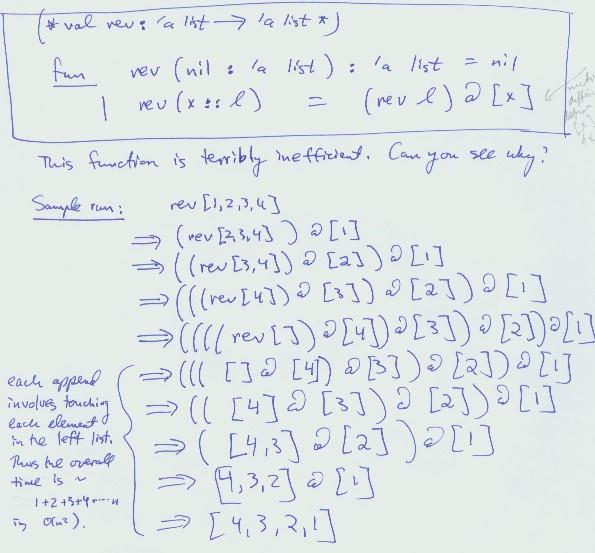 (* val rev : 'a list → 'a list *)
fun rev (nil : 'a list) : 'a list = nil
| rev (x :: l) = (rev l) @ [x]
This function is terribly inefficient. Can you see why?
Sample run: rev [1,2,3,4]
⇒ (rev [2,3,4]) @ [1]
⇒ ((rev [3,4]) @ [2]) @ [1]
⇒ (((rev [4]) @ [3]) @ [2]) @ [1]
⇒ ((((rev []) @ [4]) @ [3]) @ [2]) @ [1]
⇒ ((( [] @ [4]) @ [3]) @ [2]) @ [1]
⇒ (( [4] @ [3]) @ [2]) @ [1]
⇒ ( [4,3] @ [2]) @ [1]
⇒ [4,3,2] @ [1]
⇒ [4,3,2,1]
each append
involves touching
each element
in the left list.
Thus the overall
time is ~
1+2+3+4+····n
O(n²).